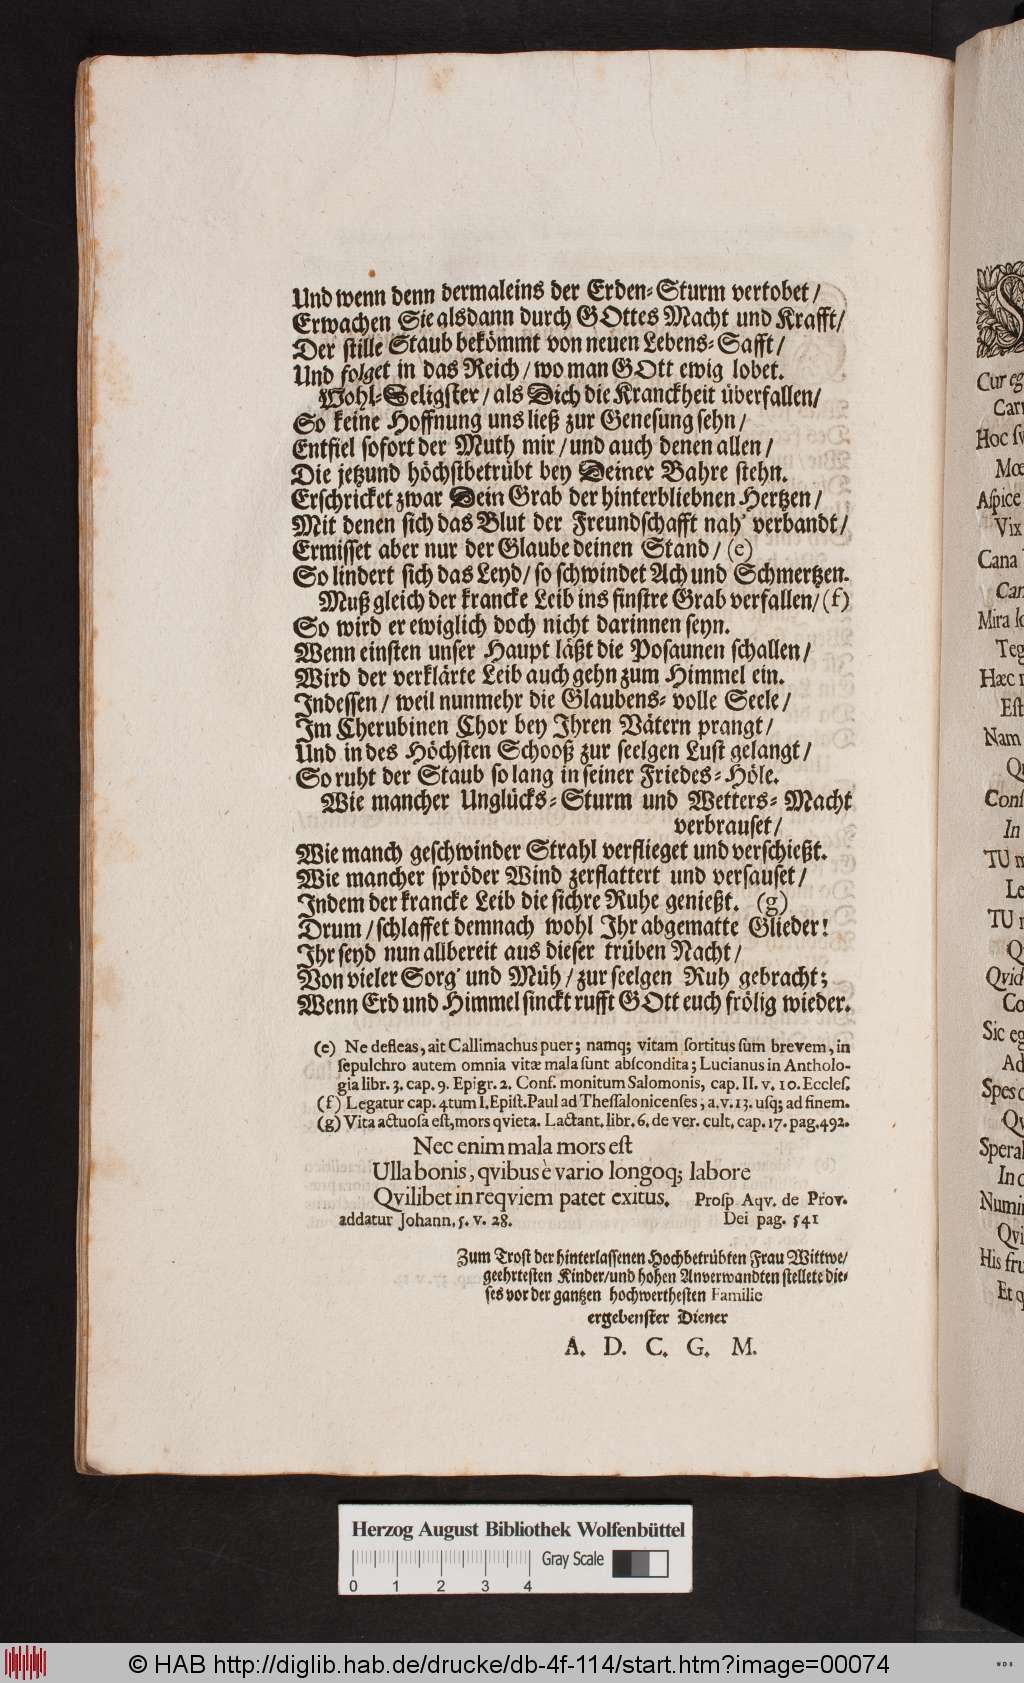 Und wenn denn dermaleins der Erden-Sturm vertobet /
Erwachen Sie alsdann durch GOttes Macht und Krafft/
Der stille Staub bekömmt von neuen Lebens-Safft /
Und folget in das Reich / wo man GOtt ewig lobet.
Wohl-Seligster / als Dich die Kranckheit überfallen/
So keine Hoffnung uns ließ zur Genesung sehn /
Entfiel sofort der Muth mir / und auch denen allen /
Die jetzund höchstbetrübt bey Deiner Bahre stehn.
Erschricket zwar Dein Grab der hinterbliebnen Hertzen /
Mit denen sich das Blut der Freundschafft nah' verbandt /
Ermisset aber nur der Glaube deinen Stand / (e)
So lindert sich das Leyd / so schwindet Ach und Schmertzen.
Muß gleich der krancke Leib ins finstre Grab verfallen/ (f)
So wird er ewiglich doch nicht darinnen seyn.
Wenn einsten unser Haupt läßt die Posaunen schallen /
Wird der verklärte Leib auch gehn zum Himmel ein.
Indessen / weil nunmehr die Glaubens-volle Seele /
Im Cherubinen Chor bey Ihren Vätern prangt /
Und in des Höchsten Schooß zur seelgen Lust gelangt /
So ruht der Staub so lang in seiner Friedes-Höle.
Wie mancher Unglücks-Sturm und Wetters-Macht
verbrauset /
Wie manch geschwinder Strahl verflieget und verschießt.
Wie mancher spröder Wind zerflattert und versauset /
Indem der krancke Leib die sichre Ruhe genießt. (g)
Drum / schlaffet demnach wohl Ihr abgematte Glieder!
Ihr seyd nun allbereit aus dieser trüben Nacht /
Von vieler Sorg' und Müh / zur seelgen Ruh gebracht;
Wenn Erd und Himmel sinckt rufft GOtt euch frölig wieder.
(e) Ne defleas, ait Callimachus puer; namq; vitam sortitus sum brevem, in
sepulchro autem omnia vitæ mala sunt abscondita; Lucianus in Antholo-
gia libr. 3. cap. 9. Epigr. 2. Conf. monitum Salomonis, cap. II. v. 10. Eccles.
(f) Legatur cap. 4tum I. Epist. Paul ad Thessalonicenses, a. v. 13. usq; ad finem.
(g) Vita actuosa est, mors qvieta. Lactant. libr. 6. de ver. cult. cap. 17. pag. 492.
Nec enim mala mors est
Ulla bonis, qvibus è vario longoq; labore
Qvilibet in reqviem patet exitus. Prosp Aqv. de Prov.
addatur Johann. 5. v. 28. Dei pag. 541
Zum Trost der hinterlassenen Hochbetrübten Frau Wittwe/
geehrtesten Kinder/und hohen Anverwandten stellete die-
ses vor der gantzen hochwerthesten Familie
ergebenster Diener
A. D. C. G. M.
Cur eg
Hoc
Aspice
Vix
Cana
Mira
Teg
Hæc
Est
Nam
In
TU
Le
TU
Qvid
Co
Sic eg
Ad
Spes
Spera
In
Numi
Qvi
His fru
Et q
Herzog August Bibliothek Wolfenbüttel
Gray Scale
0 1 2 3 4
© HAB http://diglib.hab.de/drucke/db-4f-114/start.htm?image=00074